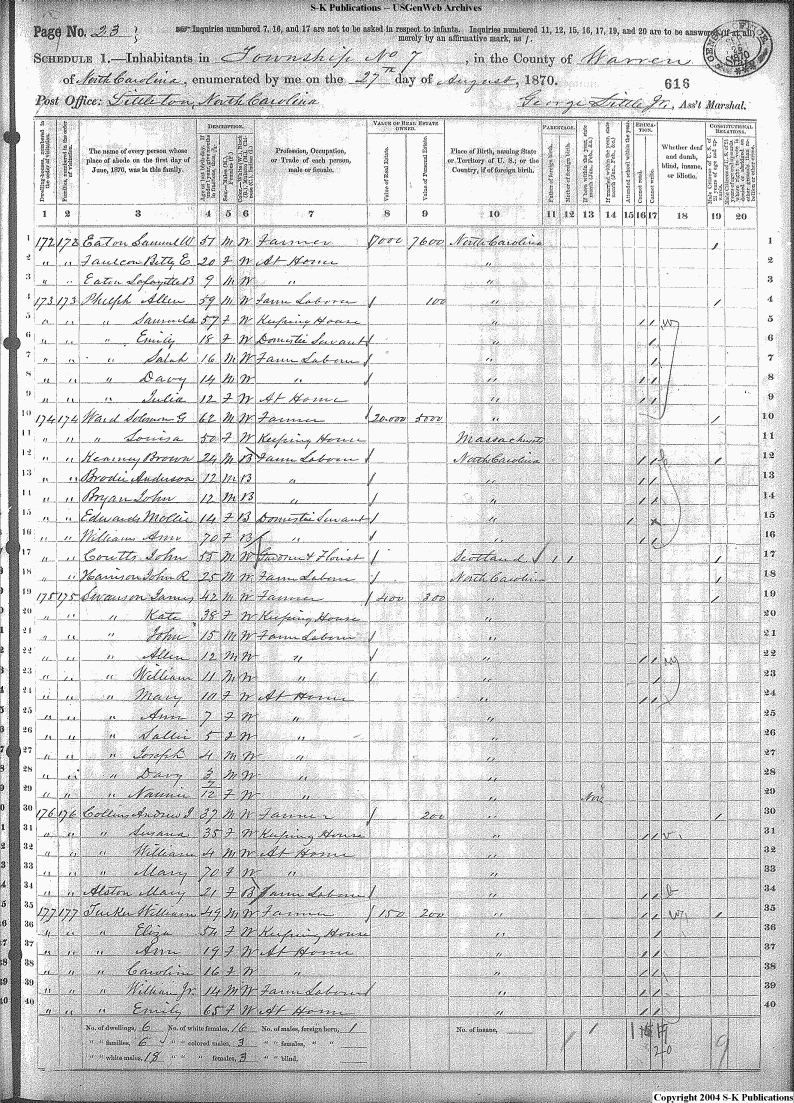 S-K Publications -- USGenWeb Archives
Page No. 23
Inquiries numbered 7, 16, and 17 are not to be asked in respect to infants. Inquiries numbered 11, 12, 15, 16, 17, 19, and 20 are to be answered (if at all)
merely by an affirmative mark, as /.
SCHEDULE 1.—Inhabitants in Township No 7, in the County of Warren
of North Carolina, enumerated by me on the 27th day of August, 1870.
616
Post Office: Littleton, North Carolina
George Little Jr., Ass't Marshal.
DESCRIPTION.
VALUE OF REAL ESTATE OWNED.
PARENTAGE.
EDUCATION.
CONSTITUTIONAL RELATIONS.
The name of every person whose place of abode on the first day of June, 1870, was in this family.
Profession, Occupation, or Trade of each person, male or female.
Value of Real Estate.
Value of Personal Estate.
Place of Birth, naming State or Territory of U. S.; or the Country, if of foreign birth.
Father of foreign birth.
Mother of foreign birth.
Attended school within the year.
Cannot read.
Cannot write.
Whether deaf and dumb, blind, insane, or idiotic.
1 2 3 4 5 6 7 8 9 10 11 12 13 14 15 16 17 18 19 20
1 172 172 Eaton Samuel W 57 M W Farmer 7000 7600 North Carolina / 1
2 " " Faulcon Betty E 20 F W At Home " 2
3 " " Eaton Lafayette B 9 M W " " 3
4 173 173 Phelph Allen 59 M W Farm Laborer 100 " / 4
5 " " " Samuela 57 F W Keeping House " / / 5
6 " " " Emily 18 F W Domestic Servant " / 6
7 " " " Salah 16 M W Farm Labour " / 7
8 " " " Davy 14 M W " " / / 8
9 " " " Julia 12 F W At Home " / / 9
10 174 174 Ward Solomon G 62 M W Farmer 20.000 5000 " / 10
11 " " " Louisa 50 F W Keeping House Massachusetts 11
12 " " Kearney Brown 24 M B Farm Labour North Carolina / / / 12
13 " " Brodie Anderson 12 M B " " / / 13
14 " " Bryan John 12 M B " " / / 14
15 " " Edwards Mollie 14 F B Domestic Servant " / x 15
16 " " Williams Ann 70 F B " " / / 16
17 " " Coutts John 55 M W Gardner & Florist Scotland / / / 17
18 " " Harrison John R 25 M W Farm Labour North Carolina / 18
19 175 175 Swanson James 42 M W Farmer 400 300 " / 19
20 " " " Kate 38 F W Keeping House " 20
21 " " " John 15 M W Farm Labour " 21
22 " " " Allen 12 M W " " / / 22
23 " " " William 11 M W " " / 23
24 " " " Mary 10 F W At Home " / / 24
25 " " " Ann 7 F W " " 25
26 " " " Sallie 5 F W " " 26
27 " " " Joseph 4 M W " " 27
28 " " " Davy 3 M W " " 28
29 " " " Nannie 7/12 F W " " Nov 29
30 176 176 Collins Andrew J 37 M W Farmer 200 " / 30
31 " " " Susana 35 F W Keeping House " / / 31
32 " " " William 4 M W At Home " 32
33 " " " Mary 70 F W " " 33
34 " " Alston Mary 21 F B Farm Labour " / / 34
35 177 177 Tucker William 49 M W Farmer 150 200 " / / / 35
36 " " " Eliza 54 F W Keeping House " / 36
37 " " " Ann 19 F W At Home " / / 37
38 " " " Caroline 16 F W " " / / 38
39 " " " William Jr. 14 M W Farm Labour " / / 39
40 " " " Emily 65 F W At Home " / / 40
No. of dwellings, 6 No. of white females, 16 No. of males, foreign born, 1 No. of insane,
" " families, 6 " " colored males, 3 " " females, " "
" " white males, 18 " " " females, 3 " " blind,
20
9
Copyright 2004 S-K Publications